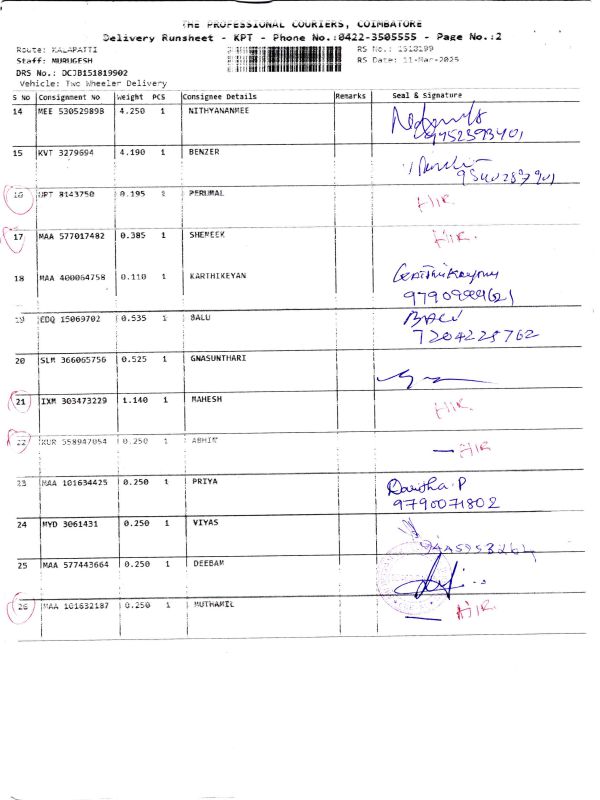 THE PROFESSIONAL COURIERS, COIMBATORE
Delivery Runsheet - KPT - Phone No.:0422-3505555 - Page No.:2
Route: KALAPATTI RS No.: 1518199
Staff: MURUGESH RS Date: 11-Mar-2025
DRS No.: DCJB151819902
Vehicle: Two Wheeler Delivery
S No Consignment No Weight PCS Consignee Details Remarks Seal & Signature
14 MEE 530529898 4.250 1 NITHYANANMEE
9752393401
15 KVT 3279694 4.190 1 BENZER
16 UPT 8143750 0.195 1 PERUMAL HIR.
17 MAA 577017482 0.385 1 SHEMEEK HIR.
18 MAA 400064758 0.110 1 KARTHIKEYAN
19 EDQ 15069702 0.535 1 BALU BALU
7204228762
20 SLM 366065756 0.525 1 GNASUNTHARI
21 IXM 303473229 1.140 1 MAHESH HIR.
22 558947054 0.250 1 ABHIN — HIR
23 MAA 101634425 0.250 1 PRIYA P
9790071802
24 MYD 3061431 0.250 1 VIYAS
25 MAA 577443664 0.250 1 DEEBAM
26 MAA 101632187 0.250 1 MUTHAMIL — HIR.